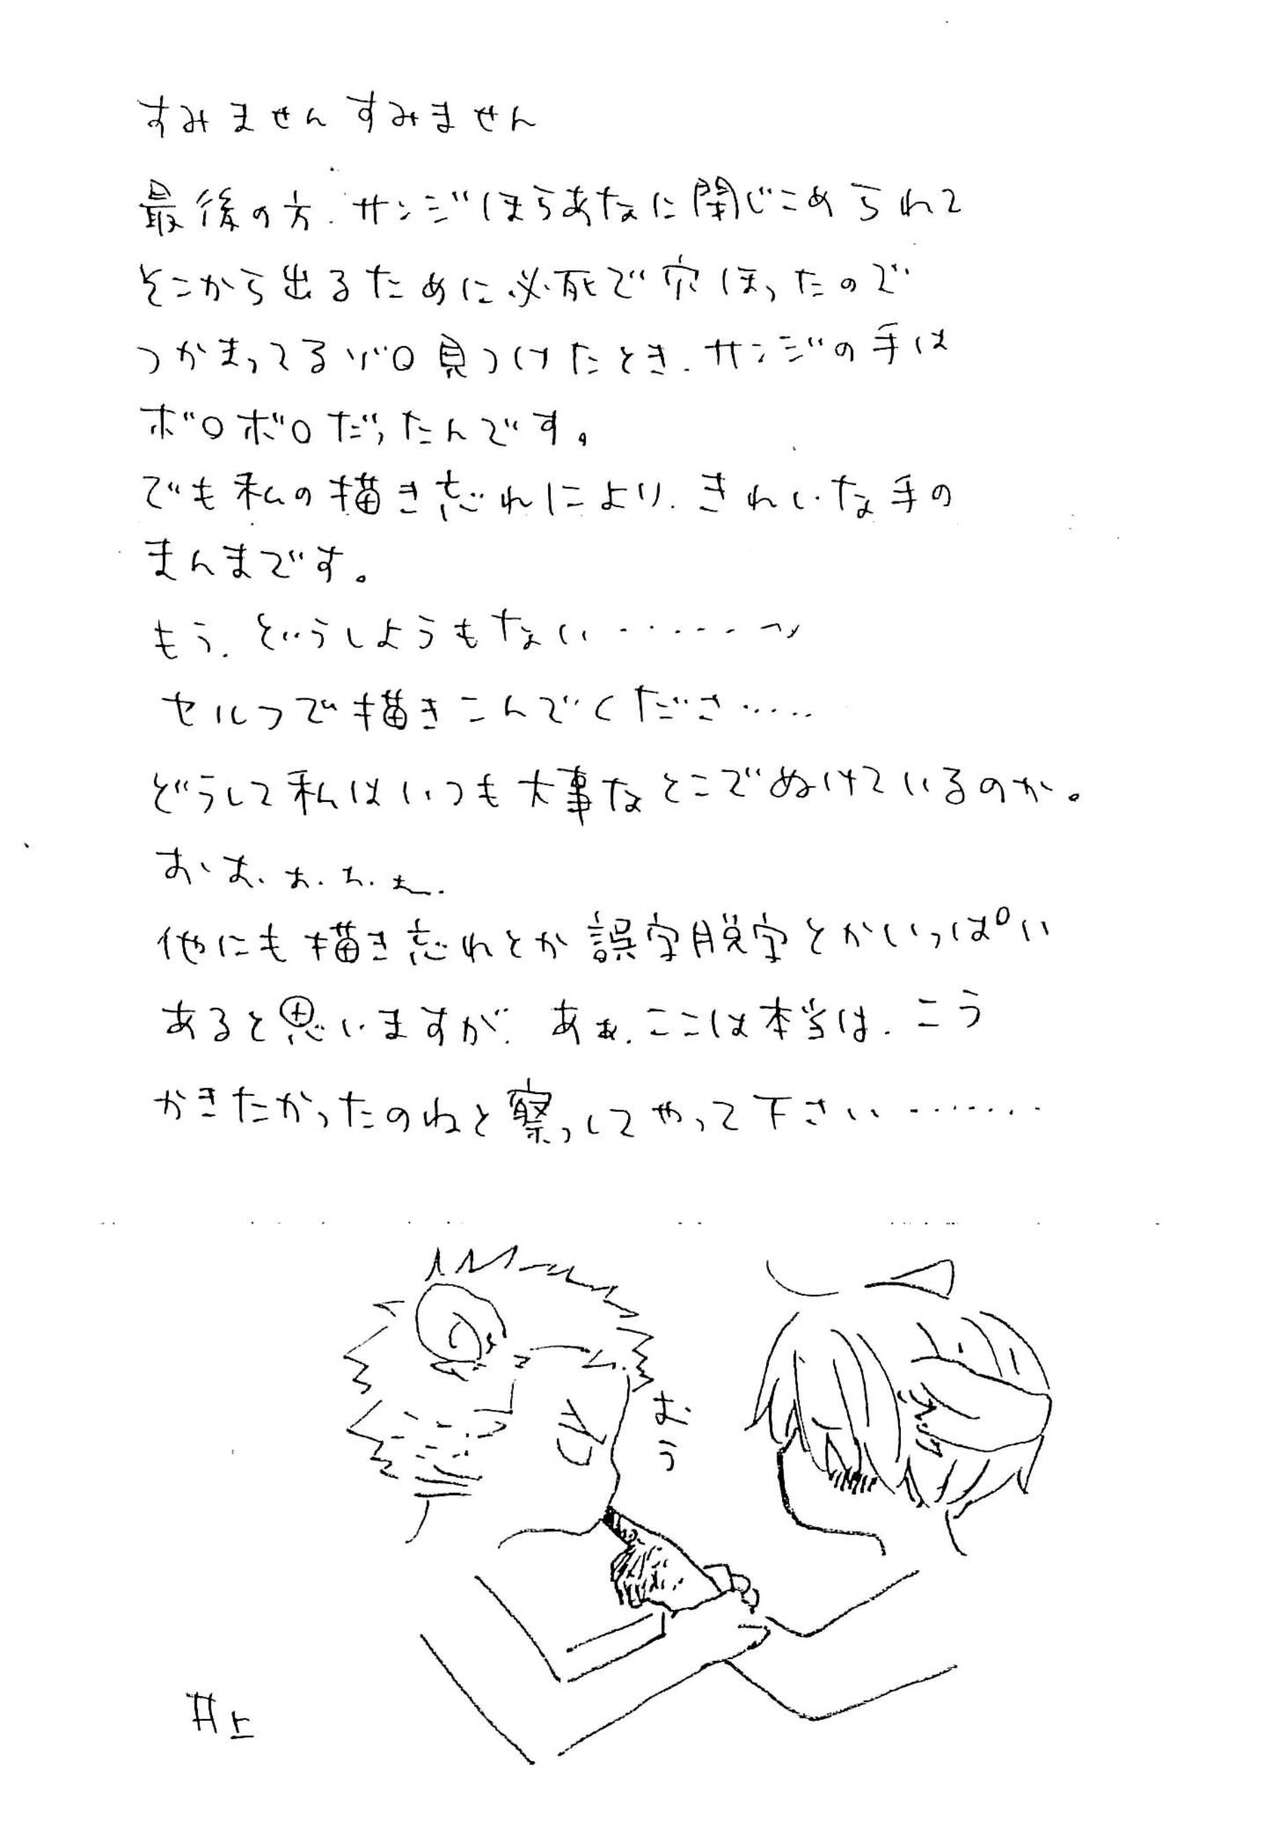 すみませんすみません
最後の方、サンジほらあなに閉じこめられて
そこから出るために必死で穴ほったので
つかまってるゾロ見つけたとき、サンジの手は
ボロボロだったんです。
でも私の描き忘れにより、きれいな手の
まんまです。
もう、どうしようもない……
セルフで描きこんでくださ……
どうして私はいつも大事なとこでぬけているのか。
お、お、ぉ、ぉ、ぉ、
他にも描き忘れとか誤字脱字とかいっぱい
あると思いますが、あぁ、ここは本当は、こう
かきたかったのねと察っしてやって下さい……
おう
井上